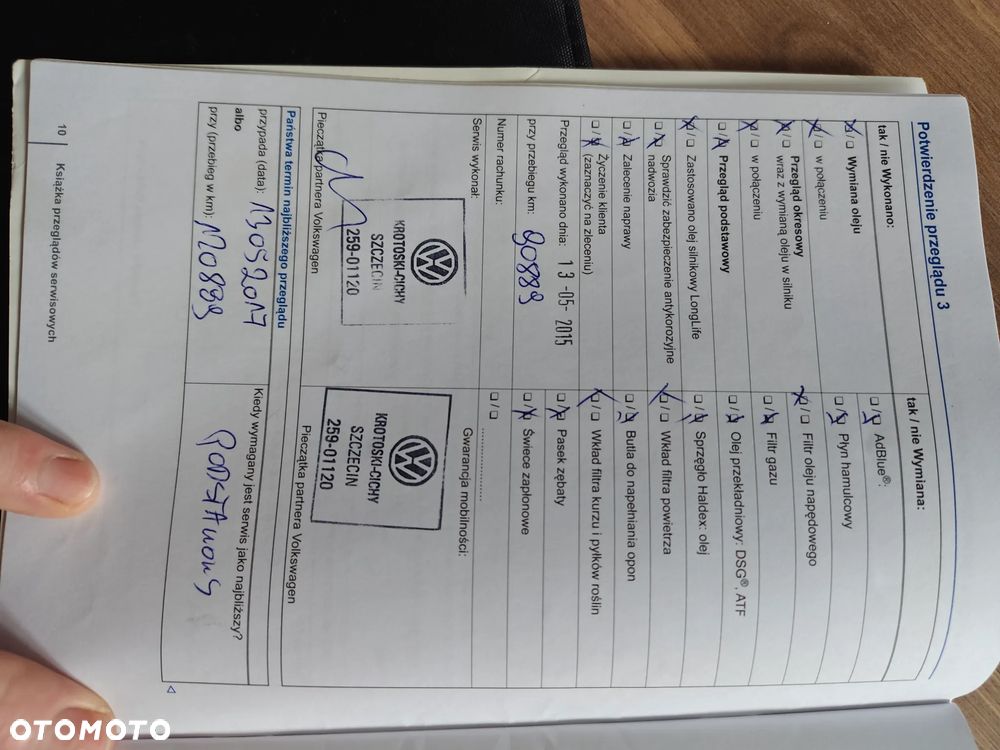 Potwierdzenie przeglądu 3
tak / nie Wykonano:
☒ / ☐ Wymiana oleju
☒ / ☐ w połączeniu
☒ / ☐ Przegląd okresowy
wraz z wymianą oleju w silniku
☒ / ☐ w połączeniu
☐ / ☒ Przegląd podstawowy
☒ / ☐ Zastosowano olej silnikowy LongLife
☐ / ☒ Sprawdzić zabezpieczenie antykorozyjne
nadwozia
☐ / ☒ Zalecenie naprawy
☐ / ☒ Życzenie klienta
(zaznaczyć na zleceniu)
Przegląd wykonano dnia: 13-05-2015
przy przebiegu km: 90889
Numer rachunku:
Serwis wykonał:
KROTOSKI-CICHY
SZCZECIN
259-01120
Pieczątka partnera Volkswagen
tak / nie Wymiana:
☐ / ☒ AdBlue®:
☐ / ☒ Płyn hamulcowy
☒ / ☐ Filtr oleju napędowego
☐ / ☒ Filtr gazu
☐ / ☒ Olej przekładniowy: DSG®, ATF
☐ / ☒ Sprzęgło Haldex: olej
☒ / ☐ Wkład filtra powietrza
☐ / ☒ Butla do napełniania opon
☒ / ☐ Wkład filtra kurzu i pyłków roślin
☐ / ☒ Pasek zębaty
☐ / ☒ Świece zapłonowe
☐ / ☐ ....................
Gwarancja mobilności:
KROTOSKI-CICHY
SZCZECIN
259-01120
Pieczątka partnera Volkswagen
Państwa termin najbliższego przeglądu
przypada (data): 13052017
albo
przy (przebieg w km): 120889
Kiedy wymagany jest serwis jako najbliższy?
PODSTAWOWY
10 Książka przeglądów serwisowych
OTOMOTO